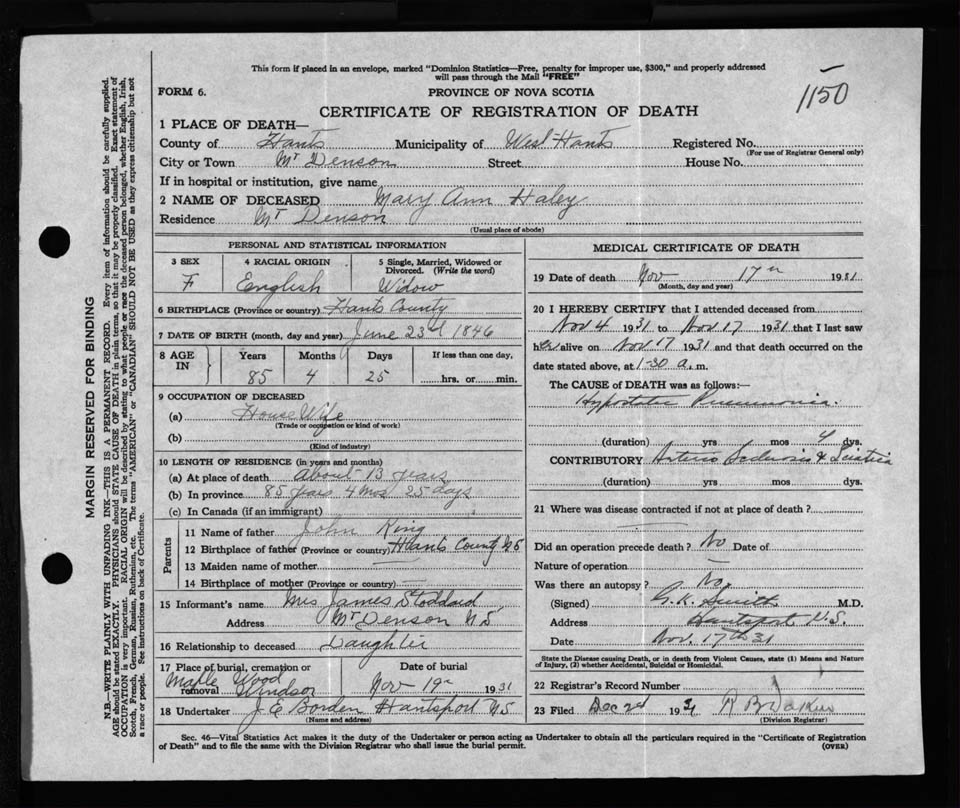 This form if placed in an envelope, marked "Dominion Statistics—Free, penalty for improper use, $300," and properly addressed
will pass through the Mail "FREE"
1150
FORM 6.
PROVINCE OF NOVA SCOTIA
CERTIFICATE OF REGISTRATION OF DEATH
1 PLACE OF DEATH—
County of Hants Municipality of West Hants Registered No.
(For use of Registrar General only)
City or Town Mt Denson Street House No.
If in hospital or institution, give name
2 NAME OF DECEASED Mary Ann Haley
Residence Mt Denson
(Usual place of abode)
PERSONAL AND STATISTICAL INFORMATION
3 SEX 4 RACIAL ORIGIN 5 Single, Married, Widowed or Divorced. (Write the word)
F English Widow
6 BIRTHPLACE (Province or country) Hants County
7 DATE OF BIRTH (month, day and year) June 23rd 1846
8 AGE IN Years Months Days If less than one day,
85 4 25 hrs. or min.
9 OCCUPATION OF DECEASED
(a) House Wife
(Trade or occupation or kind of work)
(b)
(Kind of industry)
10 LENGTH OF RESIDENCE (in years and months)
(a) At place of death About 13 years
(b) In province 85 years 4 mos 25 days
(c) In Canada (if an immigrant)
Parents
11 Name of father John King
12 Birthplace of father (Province or country) Hants County NS
13 Maiden name of mother —
14 Birthplace of mother (Province or country) —
15 Informant's name Mrs James Stoddard
Address Mt Denson NS
16 Relationship to deceased Daughter
17 Place of burial, cremation or removal Date of burial
Maple Wood Windsor Nov 19th 1931
18 Undertaker J E Borden Hantsport NS
(Name and address)
MEDICAL CERTIFICATE OF DEATH
19 Date of death Nov 17th 1931
(Month, day and year)
20 I HEREBY CERTIFY that I attended deceased from
Nov 4 1931 to Nov 17 1931 that I last saw
her alive on Nov 17 1931 and that death occurred on the
date stated above, at 1-30 a. m.
The CAUSE of DEATH was as follows:—
Hypostatic Pneumonia.
(duration) yrs mos 4 dys.
CONTRIBUTORY Arterio Sclerosis & Sciatica
(duration) yrs mos dys.
21 Where was disease contracted if not at place of death? —
Did an operation precede death? No Date of
Nature of operation —
Was there an autopsy? No.
(Signed) G.K. Smith M.D.
Address Hantsport N.S.
Date Nov. 17th 31
State the Disease causing Death, or in death from Violent Causes, state (1) Means and Nature
of Injury, (2) whether Accidental, Suicidal or Homicidal.
22 Registrar's Record Number
23 Filed Dec 2d 1931 R B
(Division Registrar)
Sec. 46—Vital Statistics Act makes it the duty of the Undertaker or person acting as Undertaker to obtain all the particulars required in the "Certificate of Registration
of Death" and to file the same with the Division Registrar who shall issue the burial permit.
(OVER)
MARGIN RESERVED FOR BINDING
N.B.—WRITE PLAINLY WITH UNFADING INK—THIS IS A PERMANENT RECORD. Every item of information should be carefully supplied.
AGE should be stated EXACTLY. PHYSICIANS should STATE CAUSE OF DEATH in plain terms, so that it may be properly classified. Exact statement of
OCCUPATION is very important. RACIAL ORIGIN will be described by stating to what people or race the deceased person belonged, whether English, Irish,
Scotch, French, German, Russian, Ruthenian, etc. The terms "AMERICAN" or "CANADIAN" SHOULD NOT BE USED as they express citizenship but not
a race or people. See instructions on back of Certificate.